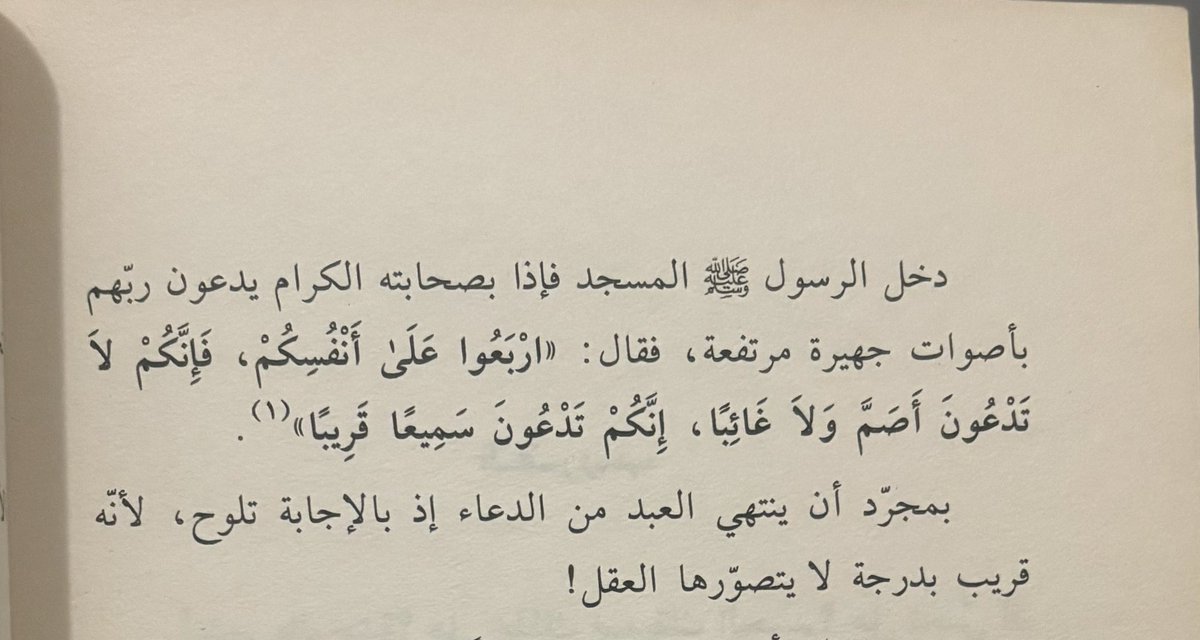 دخل الرسول ﷺ المسجد فإذا بصحابته الكرام يدعون ربّهم
بأصوات جهيرة مرتفعة، فقال: «ارْبَعُوا عَلَىٰ أَنْفُسِكُمْ، فَإِنَّكُمْ لاَ
تَدْعُونَ أَصَمَّ وَلاَ غَائِبًا، إِنَّكُمْ تَدْعُونَ سَمِيعًا قَرِيبًا»(١).
بمجرّد أن ينتهي العبد من الدعاء إذ بالإجابة تلوح، لأنّه
قريب بدرجة لا يتصوّرها العقل!